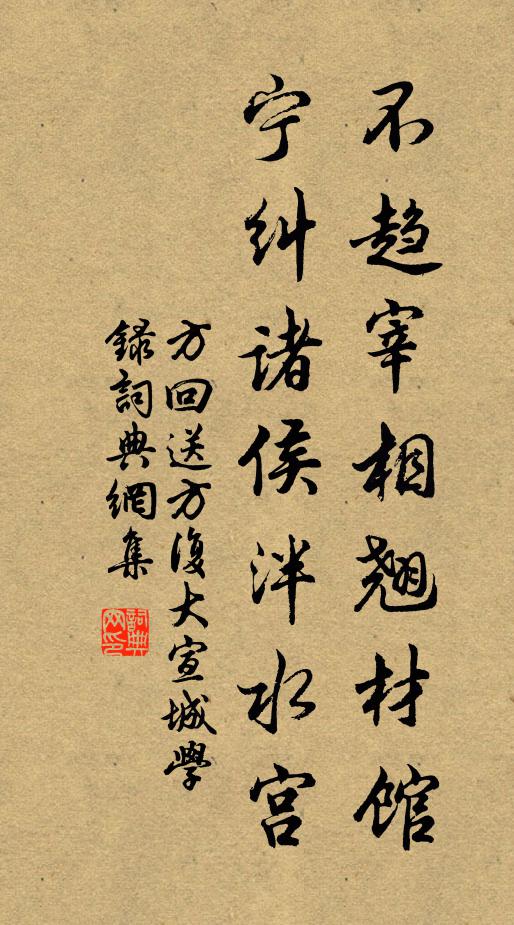 不趋宰相翘材馆
宁纠诸侯泮水宫
方回送方復大宣城學
録詞典網集
詞典網印